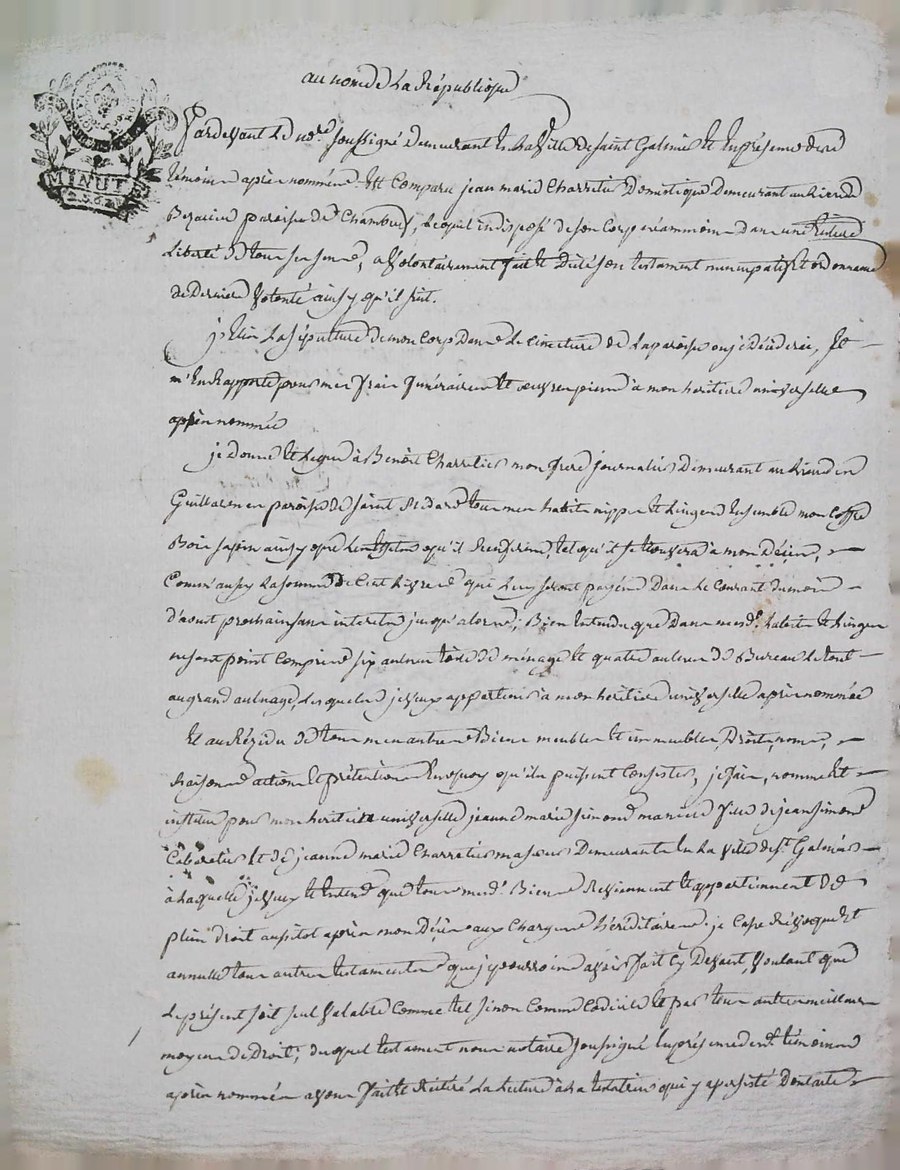 au nom de La République
MINUTE
Pardevant Le nore soussigné Demeurant En La Ville de saint Galmier Et En présence de
témoins après nommés Est Comparu jean marie Charretier Domestique Demeurant au lieu de
paroisse de Chambeuf, Lequel indisposé de son Corps néammoins Dans une Entiere
Liberté de tous ses sens, a Volontairement fait Et Dicté son testament nuncupatif Et ordonnance
de Derniere Volonté ainsy qu'il suit.
j'Elis La sépulture de mon Corps Dans Le Cimetiere de La paroisse ou je Déciderai, Je
m'En Rapporte pour mes frais funéraires Et œuvres pies à mon héritiere universelle
après nommée
je Donne Et Legue à Benoit Charretier mon frere journalier Demeurant au Lieu de
paroisse de saint tous mes habits nippes Et Linges Ensemble mon Coffre
Bois sapin ainsy que Les Effets qu'il Renferme tel qu'il se trouvera à mon Décès,
Comm'aussy La somme De Cent Livres que Luy seront payés Dans Le Courant du mois
d'aoust prochain sans interets jusqu'alors; Bien Entendu que Dans mesd. habits Et Linges
ne sont point Compris six autres toile de ménage Et quatre autres de Bureau Le tout
au grand aulnage, Lesquels je veux appartenir à mon héritiere universelle après nommée
Et au Rézidu de tous mes autres Biens meubles Et immeubles, Droits, noms,
Raisons actions Et prétentions En quoy qu'ils puissent Consister, je fais, nomme Et
institue pour mon héritiere universelle jeanne marie simond ma niece fille de jean simond
Cabaretier Et de jeanne marie Charretier majeure Demeurante En La Ville de St Galmier
à Laquelle je veux Et Entend que tous mesd. Biens Reviennent Et appartiennent de
plein droit aussitot après mon Décès aux Charges héréditaires. je Casse Révoque Et
annulle tous autres testaments que j'y pourrois avoir fait Cy Devant, Voulant que
Le présent soit seul Valable Comme tel sinon Comme Codicile Et par tous autres meilleurs
moyens de Droit, duquel testament nous notaire soussigné En présence desd. témoins
après nommés avons fait Et Réitéré La Lecture à La testatrice qui y a persisté Dont acte